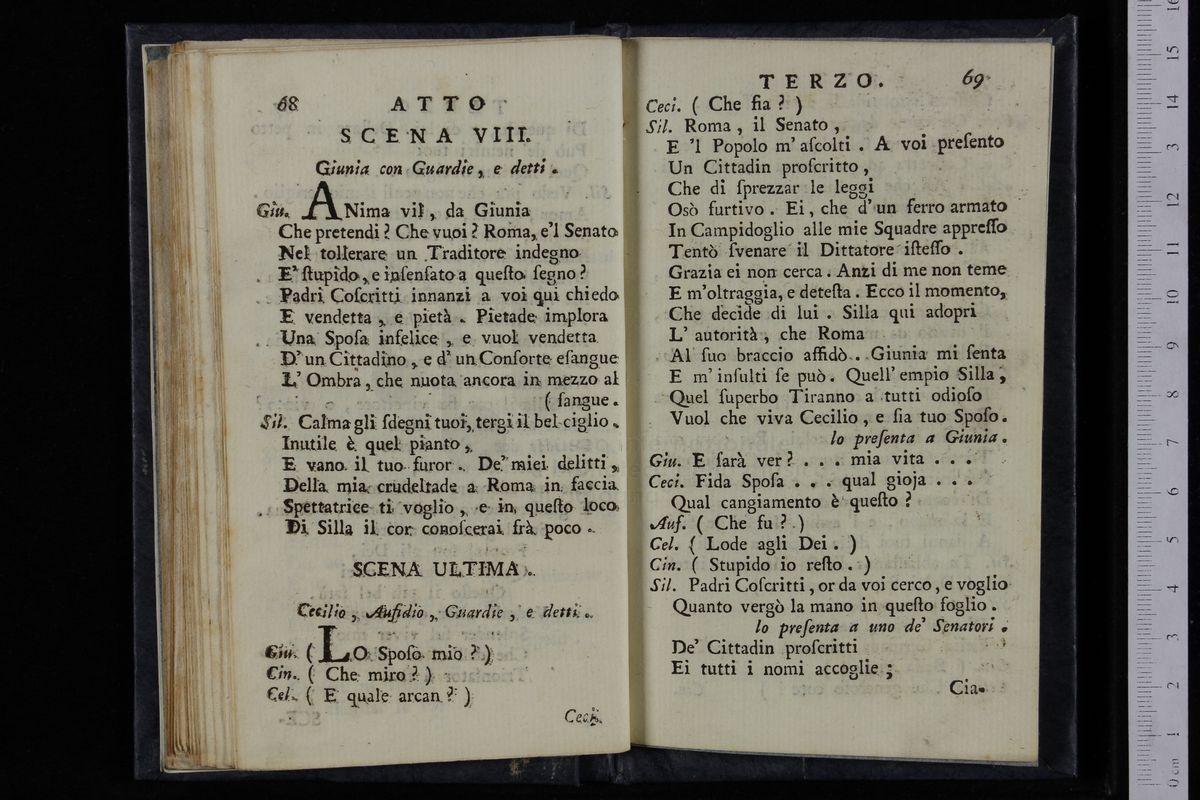 68 ATTO
SCENA VIII.
Giunia con Guardie, e detti.
Giu. ANima vil, da Giunia
Che pretendi? Che vuoi? Roma, e'l Senato
Nel tollerare un Traditore indegno
E' ſtupido, e inſenſato a queſto ſegno?
Padri Coſcritti innanzi a voi qui chiedo
E vendetta, e pietà. Pietade implora
Una Spoſa infelice, e vuol vendetta
D' un Cittadino, e d' un Conſorte eſangue
L' Ombra, che nuota ancora in mezzo al
( ſangue.
Sil. Calma gli ſdegni tuoi, tergi il bel ciglio.
Inutile è quel pianto,
E vano il tuo furor. De' miei delitti,
Della mia crudeltade a Roma in faccia
Spettatrice ti voglio, e in queſto loco
Di Silla il cor conoſcerai frà poco.
SCENA ULTIMA.
Cecilio, Aufidio, Guardie, e detti.
Giu. ( LO Spoſo mio? )
Cin. ( Che miro? )
Cel. ( E quale arcan? )
Ceci.
TERZO. 69
Ceci. ( Che fia? )
Sil. Roma, il Senato,
E 'l Popolo m' aſcolti. A voi preſento
Un Cittadin proſcritto,
Che di ſprezzar le leggi
Osò furtivo. Ei, che d' un ferro armato
In Campidoglio alle mie Squadre appreſſo
Tentò ſvenare il Dittatore iſteſſo.
Grazia ei non cerca. Anzi di me non teme
E m'oltraggia, e deteſta. Ecco il momento,
Che decide di lui. Silla qui adopri
L' autorità, che Roma
Al ſuo braccio affidò. Giunia mi ſenta
E m' inſulti ſe può. Quell' empio Silla,
Quel ſuperbo Tiranno a tutti odioſo
Vuol che viva Cecilio, e ſia tuo Spoſo.
lo preſenta a Giunia.
Giu. E ſarà ver? . . . mia vita . . .
Ceci. Fida Spoſa . . . qual gioja . . .
Qual cangiamento è queſto?
Auf. ( Che fu? )
Cel. ( Lode agli Dei. )
Cin. ( Stupido io reſto. )
Sil. Padri Coſcritti, or da voi cerco, e voglio
Quanto vergò la mano in queſto foglio.
lo preſenta a uno de' Senatori.
De' Cittadin proſcritti
Ei tutti i nomi accoglie;
Cia-